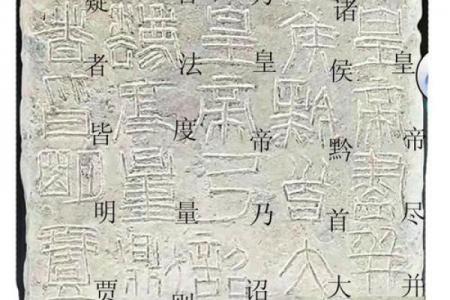 皇帝尽并
诸侯黔首大
皇帝乃诏
法度量则
疑者皆明贾